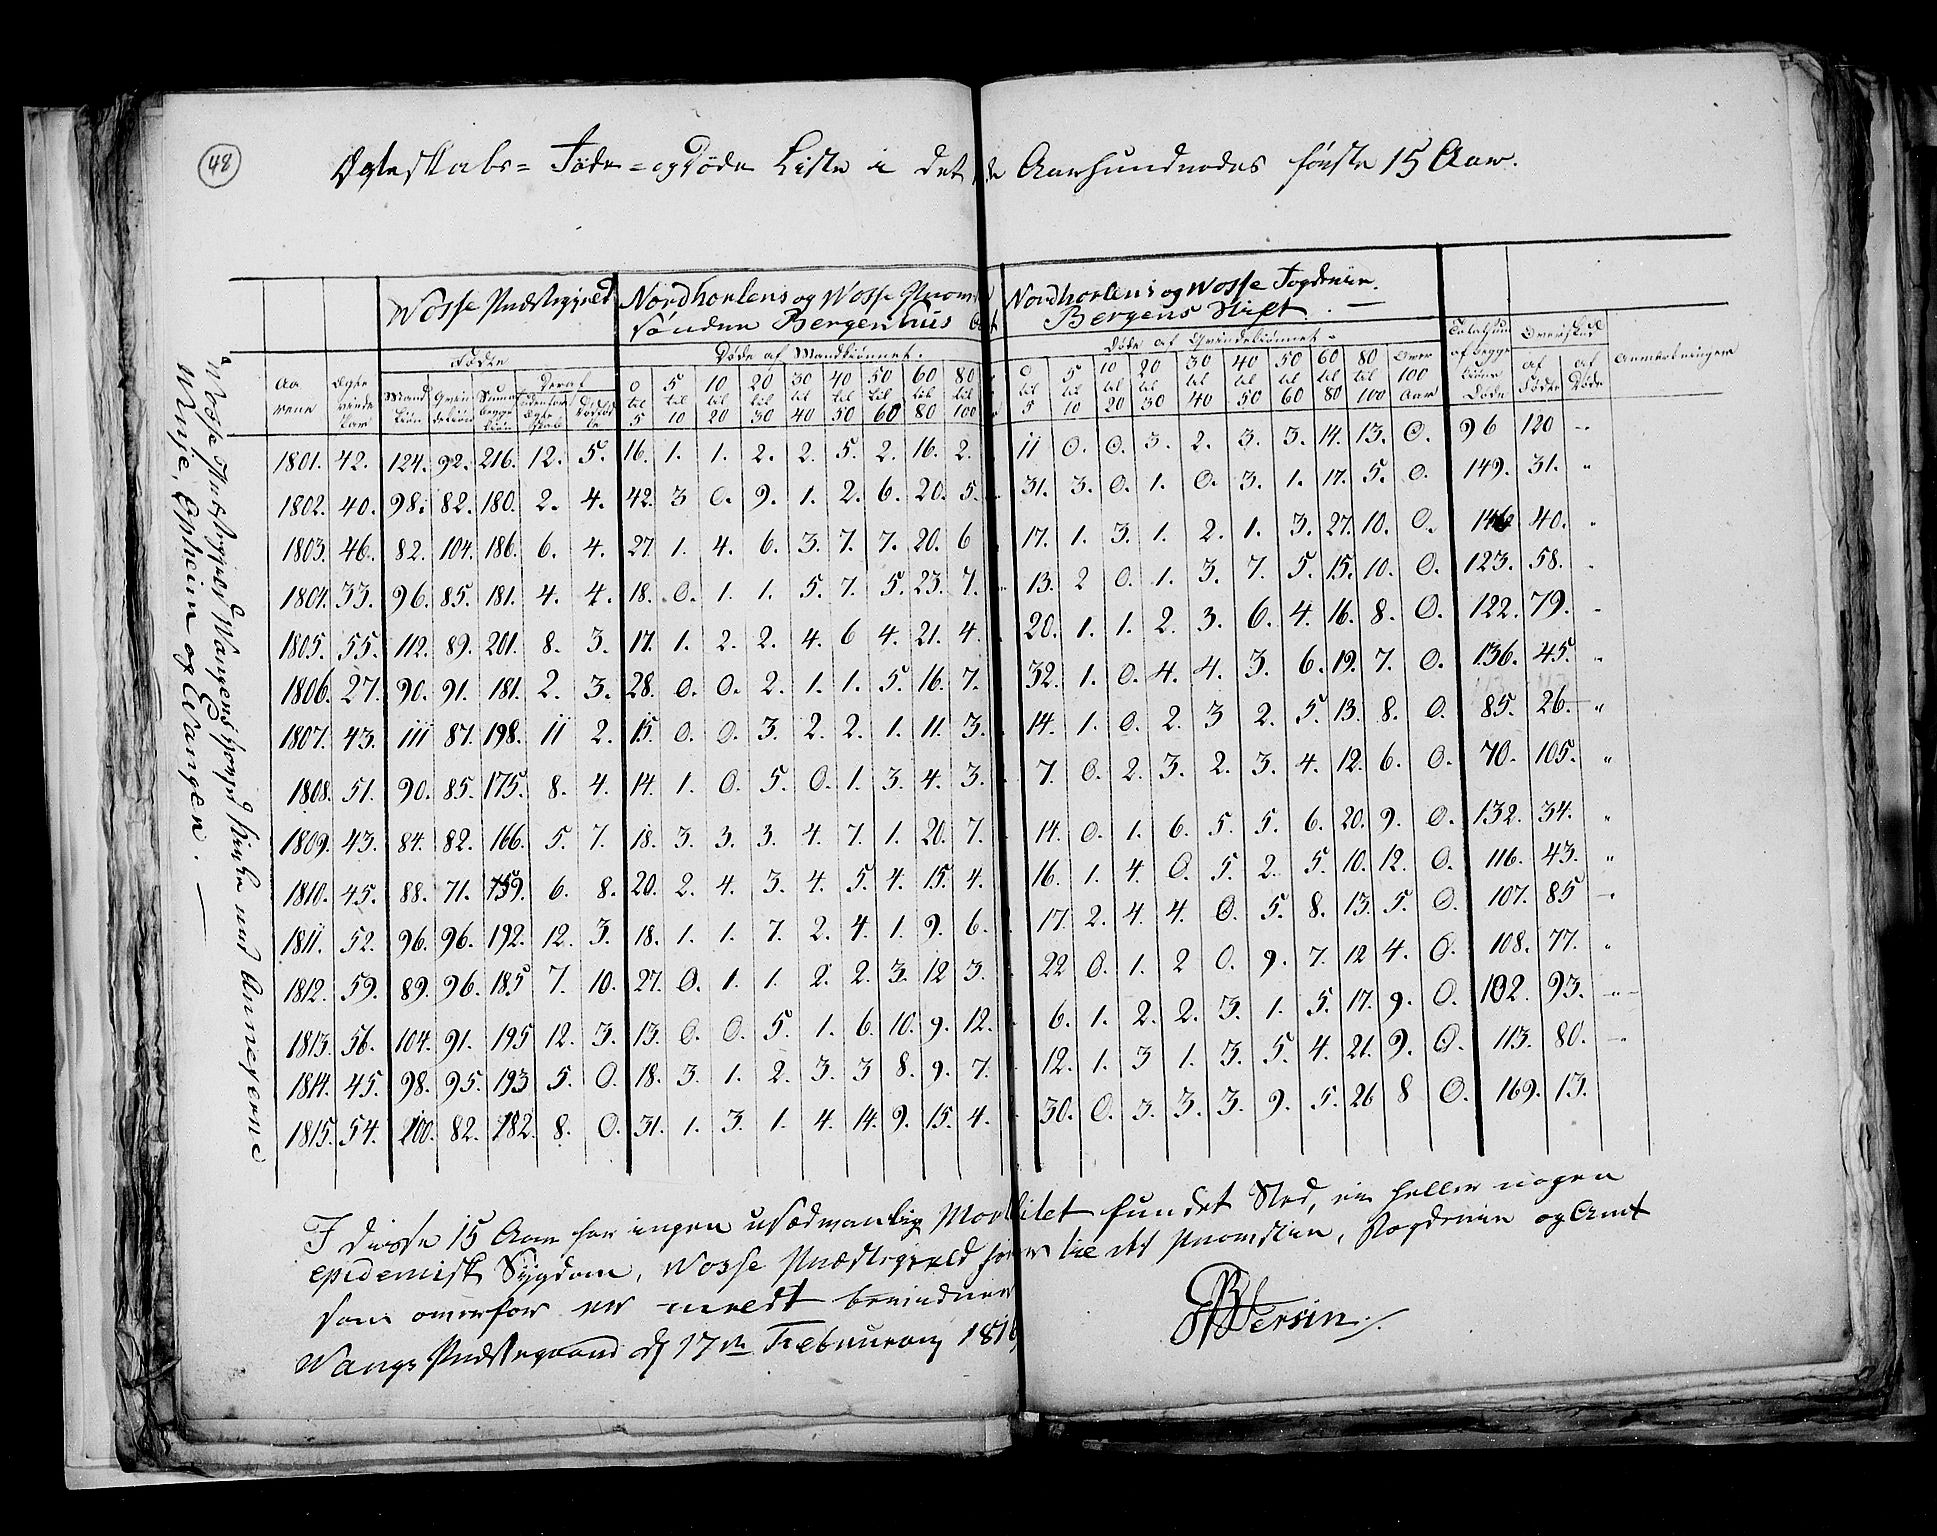 48
Ægteskabs= Føde =og Døde Liste i det de Aarhundredes første 15 Aar.
Wosse Præstegield Nordhorlens og Wosse Provstie Nordhorlens og Wosse Fogderie.
Søndre Bergenhus Amt Bergens Stift.
Aarene Ægteviede Par Fødte Døde af Mandkiønnet. Døde af Qvindekiønnet. Totalsum af begge Kiøn Døde Overskud Anmerkninger
Mandkiøn Qvindekiøn Summa begge Kiøn Deraf af Fødde af Døde
Uden for Ægteskab Dødfødde
0 til 5 5 til 10 10 til 20 20 til 30 30 til 40 40 til 50 50 til 60 60 til 80 80 til 100 0 til 5 5 til 10 10 til 20 20 til 30 30 til 40 40 til 50 50 til 60 60 til 80 80 til 100 Over 100 Aar
1801. 42. 124. 92. 216. 12. 5. 16. 1. 1. 2. 2. 5. 2. 16. 2. 11 0. 0. 3. 2. 3. 3. 14. 13. 0. 96 120 "
1802. 40. 98. 82. 180. 2. 4. 42. 3 0. 9. 1. 2. 6. 20. 5. 31. 3. 0. 1. 0. 3. 1. 17. 5. 0. 149. 31. "
1803. 46. 82. 104. 186. 6. 4. 27. 1. 4. 6. 3. 7. 7. 20. 6 17. 1. 3. 1. 2. 1. 3. 27. 10. 0. 146 40. "
1804. 33. 96. 85. 181. 4. 4. 18. 0. 1. 1. 5. 7. 5. 23. 7. 13. 2 0. 1. 3. 7. 5. 15. 10. 0. 123. 58. "
1805. 55. 112. 89. 201. 8. 3. 17. 1. 2. 2. 4. 6 4. 21. 4. 20. 1. 1. 2. 3. 6. 4. 16. 8. 0. 122. 79. "
1806. 27. 90. 91. 181. 2. 3. 28. 0. 0. 2. 1. 1. 5. 16. 7. 32. 1. 0. 4. 4. 3. 6. 19. 7. 0. 136. 45. "
1807. 43. 111 87. 198. 11 2. 15. 0. 0. 3. 2. 2. 1. 11. 3. 14. 1. 0. 2. 3 2. 5. 13. 8. 0. 85. 26. "
1808. 51. 90. 85. 175. 8. 4. 14. 1. 0. 5. 0. 1. 3. 4. 3. 7. 0. 2. 3. 2. 3. 4. 12. 6. 0. 70. 105. "
1809. 43. 84. 82. 166. 5. 7. 18. 3. 3. 3. 4. 7. 1. 20. 7. 14. 0. 1. 6. 5. 5. 6. 20. 9. 0. 132. 34. "
1810. 45. 88. 71. 159. 6. 8. 20. 2. 4. 3. 4. 5. 4. 15. 4. 16. 1. 4. 0. 5. 2. 5. 10. 12. 0. 116. 43. "
1811. 52. 96. 96. 192. 12. 3. 18. 1. 1. 7. 2. 4. 1. 9. 6. 17. 2. 4. 4. 0. 5. 8. 13. 5. 0. 107. 85 "
1812. 59. 89. 96. 185 7. 10. 27. 0. 1. 1. 2. 2. 3. 12 3. 22 0. 1. 2 0. 9. 7. 12 4. 0. 108. 77. "
1813. 56. 104. 91. 195 12. 3. 13. 0. 0. 5. 1. 6. 10. 9. 12. 6. 1. 2. 2. 3. 1. 5. 17. 9. 0. 102. 93. "
1814. 45. 98. 95. 193 5. 0. 18. 3. 1. 2. 3. 3 8. 9. 7. 12. 1. 3 1. 3. 5. 4. 21. 9. 0. 113. 80. "
1815. 54. 100. 82. 182. 8. 0. 31. 1. 3. 1. 4. 14. 9. 15. 4. 30. 0. 3. 3. 3. 9. 5. 26 8 0. 169. 13.
Wosse Præstegield Wangens hoved Kirke med Annexerne
Winje, Epheim og Evangen.
I disse 15 Aar har ingen usædvanlig Mortalitet fundet Sted, ei heller nogen
epidemisk Sygdom, Wosse Præstegield hører til det Provstie, Fogderie og Amt
som ovenfor er meldt bevidner
Wangs Præstegaard d 17de Februari 1816